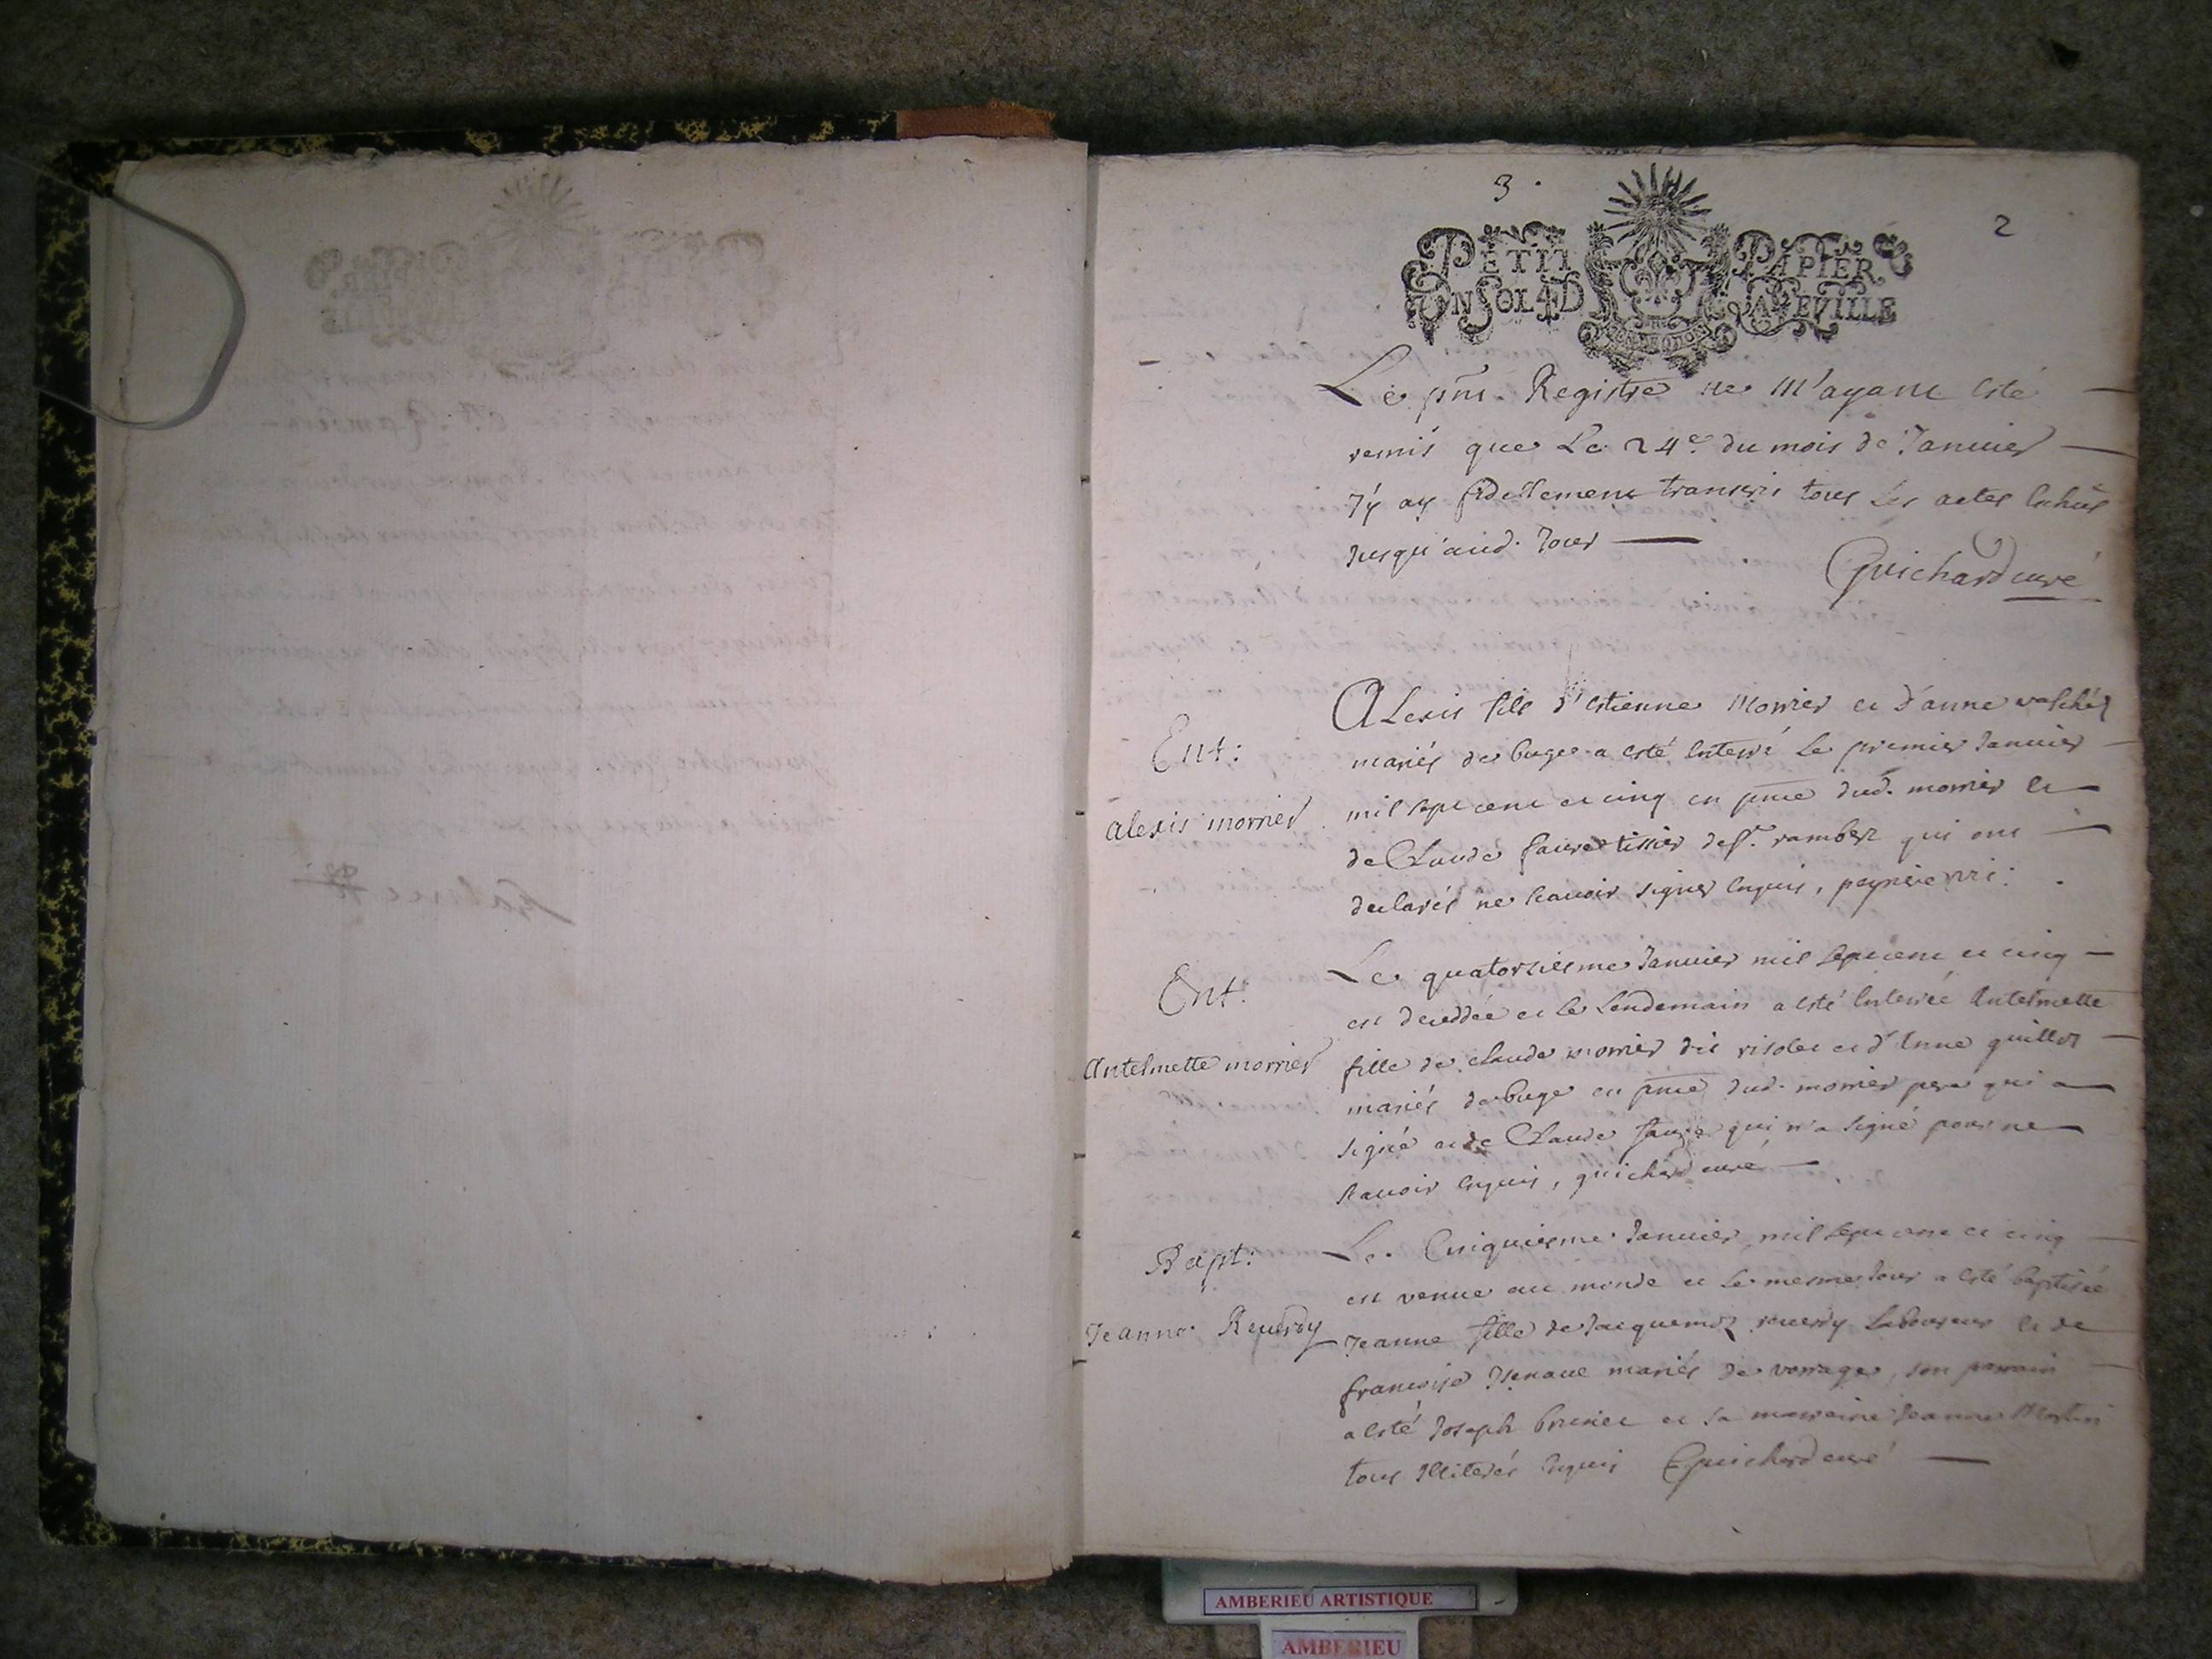 3 .
2
PETIT PAPIER
UN SOL 4 D LA FEVILLE
Le pnt. Registre ne m'ayant esté
remis que Le 24e. du mois de Janvier
J'y ay fidellement transcris tous les actes
Jusqu'aud. Jour
Guichard curé
Ent:
alexis morrier
Alexis fils d'Estienne Morrier et d'anne
mariés de buges a esté Enterré le premier Janvier
mil sept cent et cinq en pnce dud. morrier et
de Claude faure tissier de st. rambert qui ont
declarés ne scavoir signer Enquis,
Ent:
Antelmette morrier
Le quatorsiesme Janvier mil sept cent et cinq
est deceddée et le Lendemain a esté Enterrée Antelmette
fille de claude morrier dit et d'Anne guillot
mariés de buge en pnce dud. morrier pere qui a
signé et de Claude qui n'a signé pour ne
scavoir Enquis, guichard curé
Bapt:
Jeanne Reverdy
Le Cinquiesme Janvier mil sept cent et cinq
est venue au monde et le mesme Jour a esté baptisée
Jeanne fille de Jacquemoz reverdy Laboureur et de
françoise mariés de vorrages, son parrain
a esté Joseph brunet et sa marraine Jeanne
tous Illiterés Enquis Guichard curé
AMBERIEU ARTISTIQUE
AMBERIEU